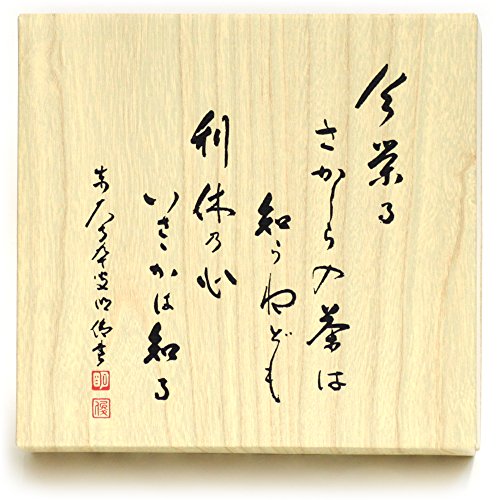 今栄る
さかしらの茶は
知らねども
利休乃心
いさかは知る
明
優